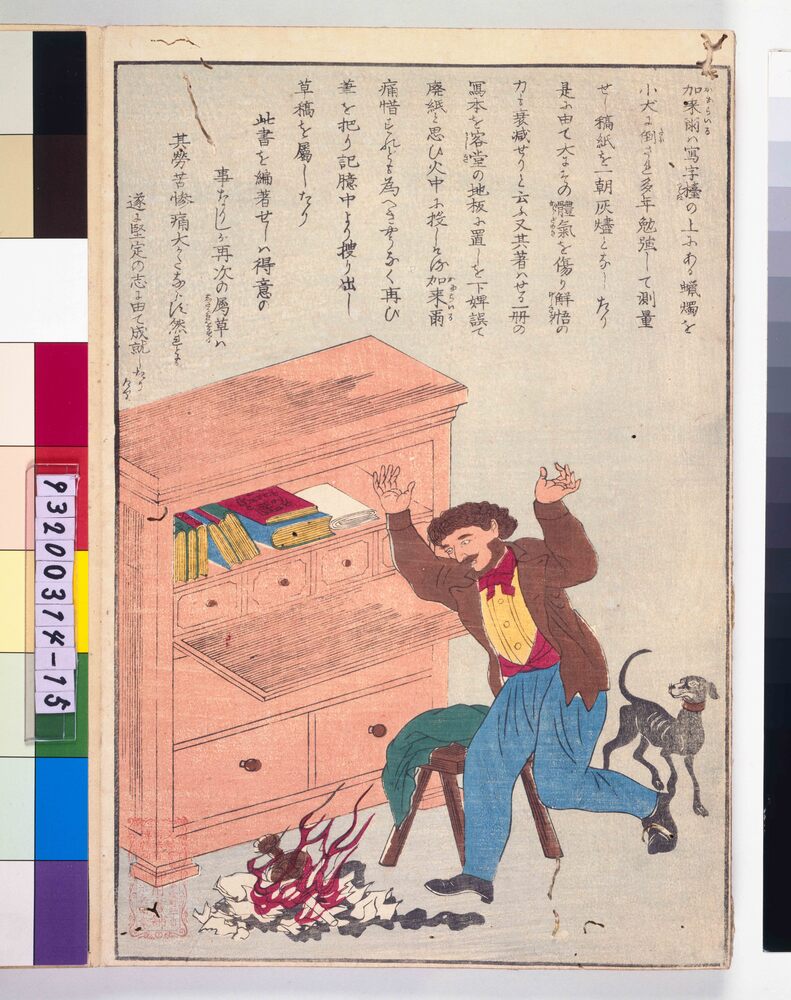 加来爾ハ寫字檯の上にある蝋燭を
小犬に倒され多年勉強して測量
せし稿紙を一朝灰燼となしたり
是に由て大にその體氣を傷り解悟の
力も衰減せりと云ふ又其著ハせる一冊の
寫本を客堂の地板に置しを下婢誤て
廃紙と思ひ火中に投しける加来爾
痛惜すれども為へき事なく再び
筆を把り記臆中より捜り出し
草稿を属したり
此書を編著せしハ得意の
事なりしが再次の属草ハ
其勞苦惨痛大かたならす然ども
遂に堅定の志に由て成就したり
93200374-15